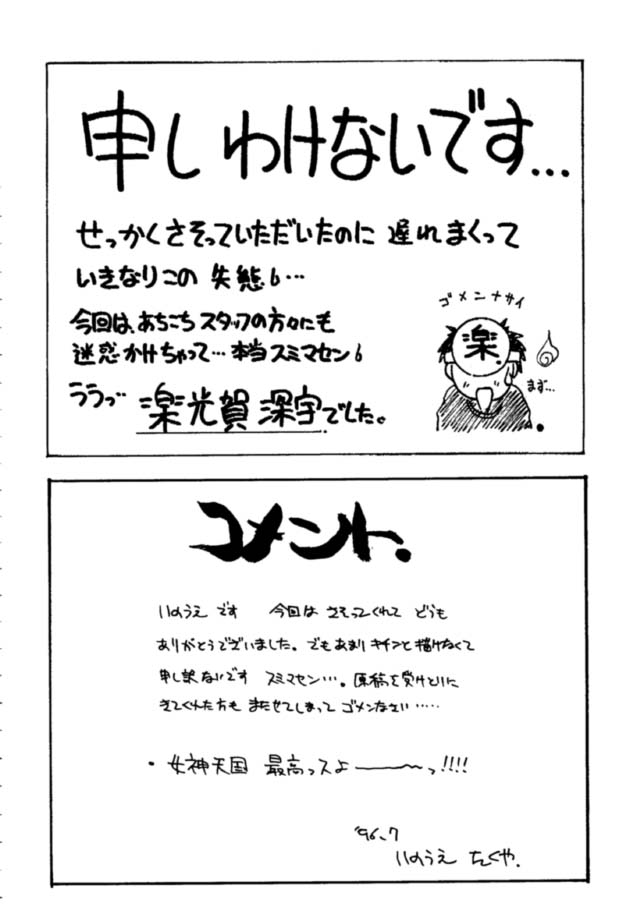 申しわけないです…
せっかくさそっていただいたのに 遅れまくって
いきなりこの 失態6…
今回は、あちこち スタッフの方々にも
迷惑かけちゃって…本当 スミマセン6
ゴメンナサイ
楽
まず…
ううっ 楽光賀 深宇でした。
コメント.
いのうえ です 今回は さそってくれて どうも
ありがとうございました。でもあまり キチンと描けなくて
申し訳ないです スミマセン…。原稿を受けとりに
きてくれた方も またせてしまって ゴメンなさい……
・女神天国 最高っスよ―――〜っ!!!!
'96.7
いのうえ たくや.